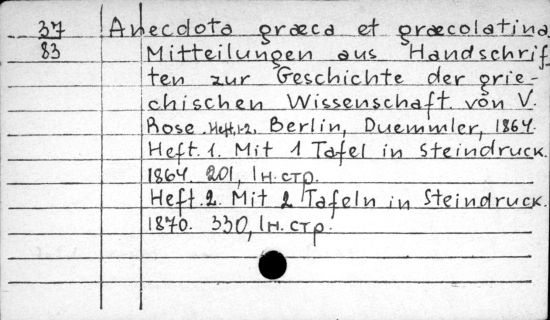 37 Anecdota græca et græcolatina
83 Mitteilungen aus Handschrif
ten zur Geschichte der grie-
chischen Wissenschaft von V.
Rose. Heft, 1-2, Berlin, Duemmler, 1864.
Heft. 1. Mit 1 Tafel in Steindruck.
1864. 201, 1 н. стр.
Heft. 2. Mit 2 Tafeln in Steindruck.
1870. 330, 1 н. стр.